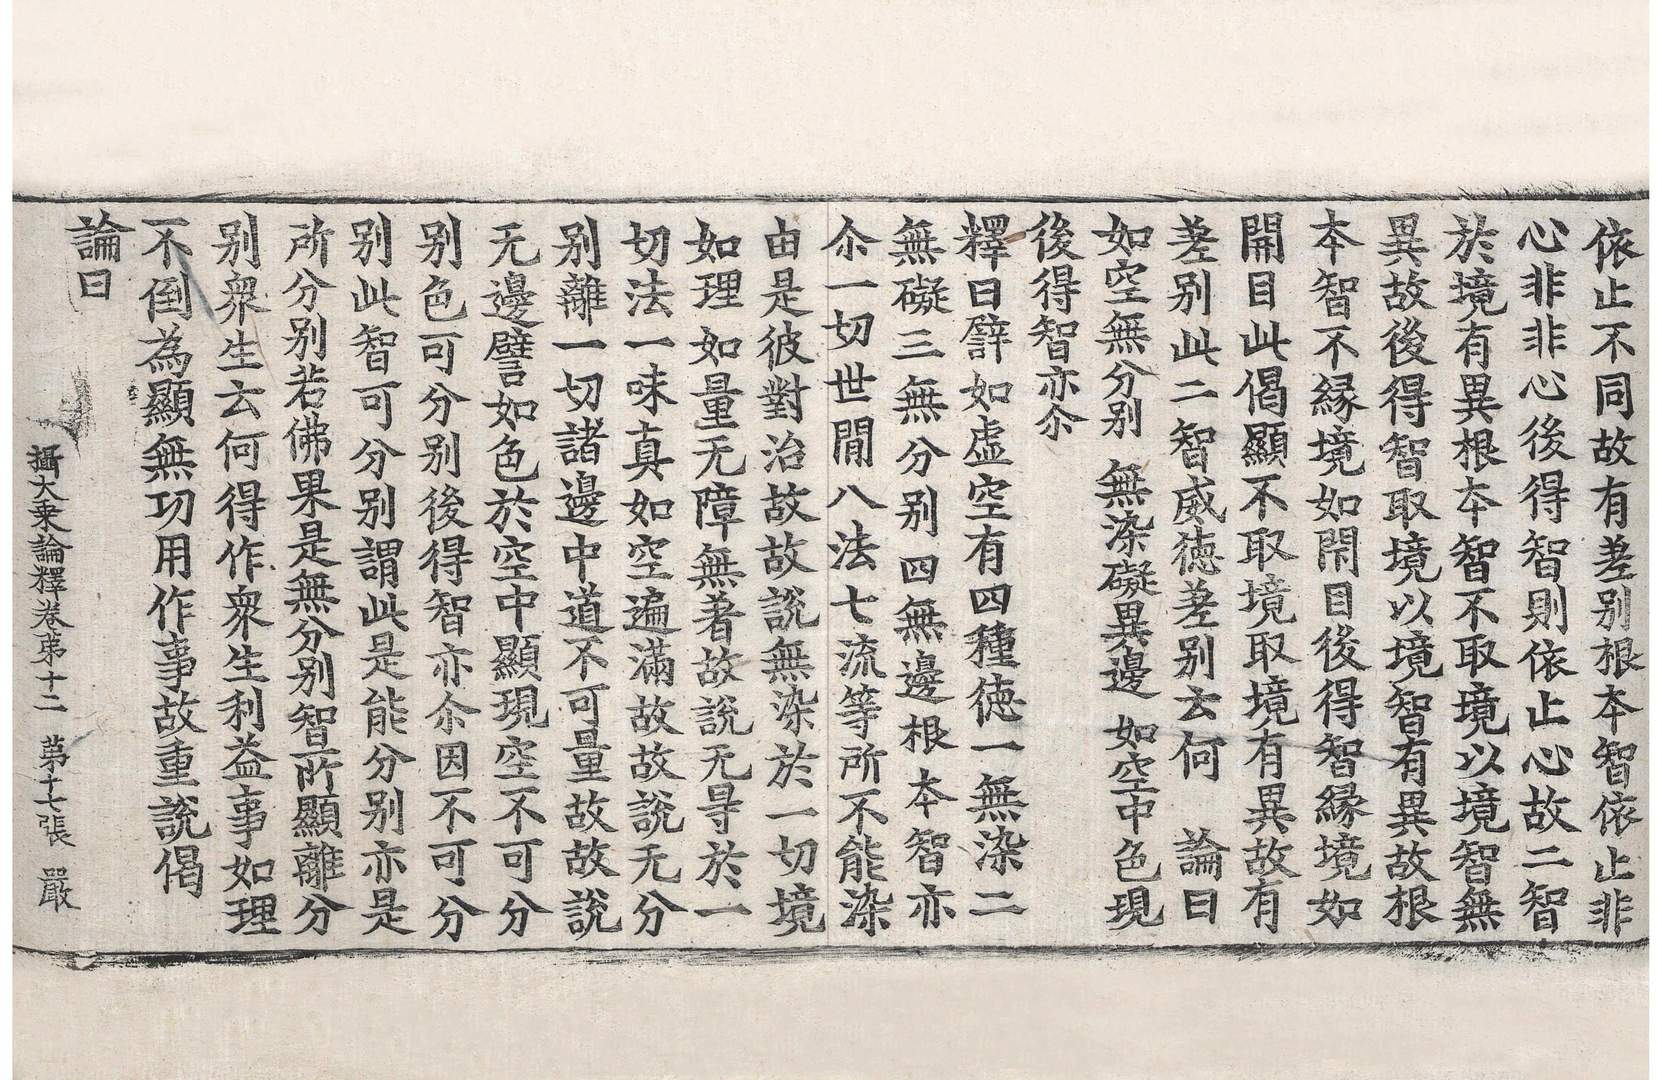 依止不同故有差别根本智依止非
心非非心後得智則依止心故二智
於境有異根本智不取境以境智無
異故後得智取境以境智有異故根
本智不縁境如閇目後得智縁境如
開目此偈顯不取境取境有異故有
差别此二智威徳差别云何　論曰
如空無分别　無染礙異邊　如空中色現
後得智亦尒
釋曰譬如虚空有四種徳一無染二
無礙三無分别四無邊根本智亦
尒一切世間八法七流等所不能染
由是彼對治故故説無染於一切境
如理如量无障無著故説无㝵於一
切法一味真如空遍滿故故説无分
别離一切諸邊中道不可量故故説
无邊譬如色於空中顯現空不可分
别色可分别後得智亦尒因不可分
别此智可分别謂此是能分别亦是
所分别若佛果是無分别智所顯離分
别衆生云何得作衆生利益事如理
不倒為顯無功用作事故重説偈
論曰
攝大乗論釋卷第十二　第十七張　嚴